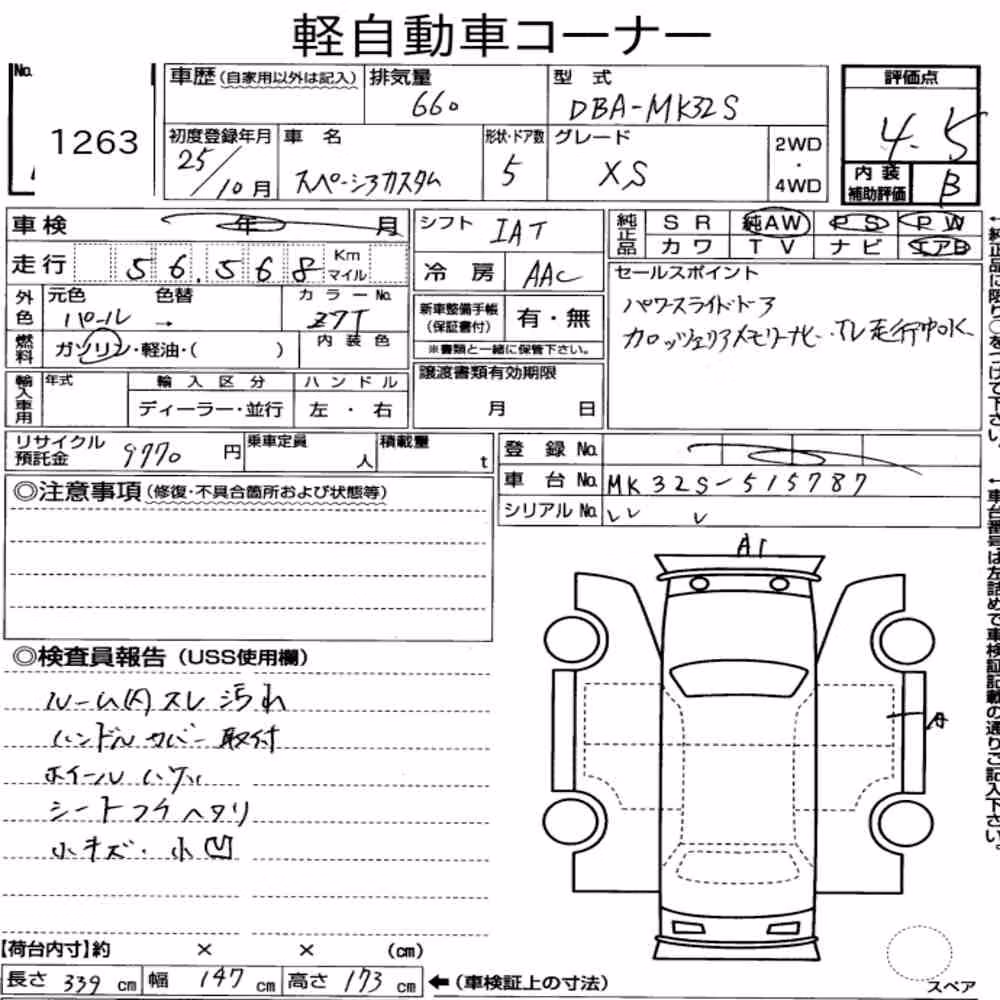 軽自動車コーナー
No. 1263
車歴(自家用以外は記入)
排気量 660
型式 DBA-MK32S
評価点 4.5
初度登録年月 25/10月
車名 スペーシアカスタム
形状・ドア数 5
グレード XS
2WD・4WD
内装補助評価 B
車検 年 月
シフト IAT
純正品 SR 純AW PS PW
カワ TV ナビ エアB
走行 56,568 Km マイル
冷房 AAC
セールスポイント
パワースライドドア
カロッツェリアメモリーナビ・TV走行中OK
外色 元色 パール → 色替
カラーNo. Z7T
新車整備手帳(保証書付) 有・無
※書類と一緒に保管下さい。
燃料 ガソリン・軽油・( )
内装色
輸入車用 年式
輸入区分 ディーラー・並行
ハンドル 左・右
譲渡書類有効期限
月 日
リサイクル預託金 9770円
乗車定員 人
積載量 t
登録No.
車台No. MK32S-515787
シリアルNo.
◎注意事項(修復・不具合箇所および状態等)
A1
A
◎検査員報告(USS使用欄)
ルーム内スレ汚れ
ハンドルカバー取付
ホイールハゲ
シートフチヘタリ
小キズ・小凹
【荷台内寸】約 × × (cm)
長さ 339 cm 幅 147 cm 高さ 173 cm ←(車検証上の寸法)
スペア
←純正品に限り○をつけて下さい。
←車台番号は左詰めで車検証記載の通りご記入下さい。